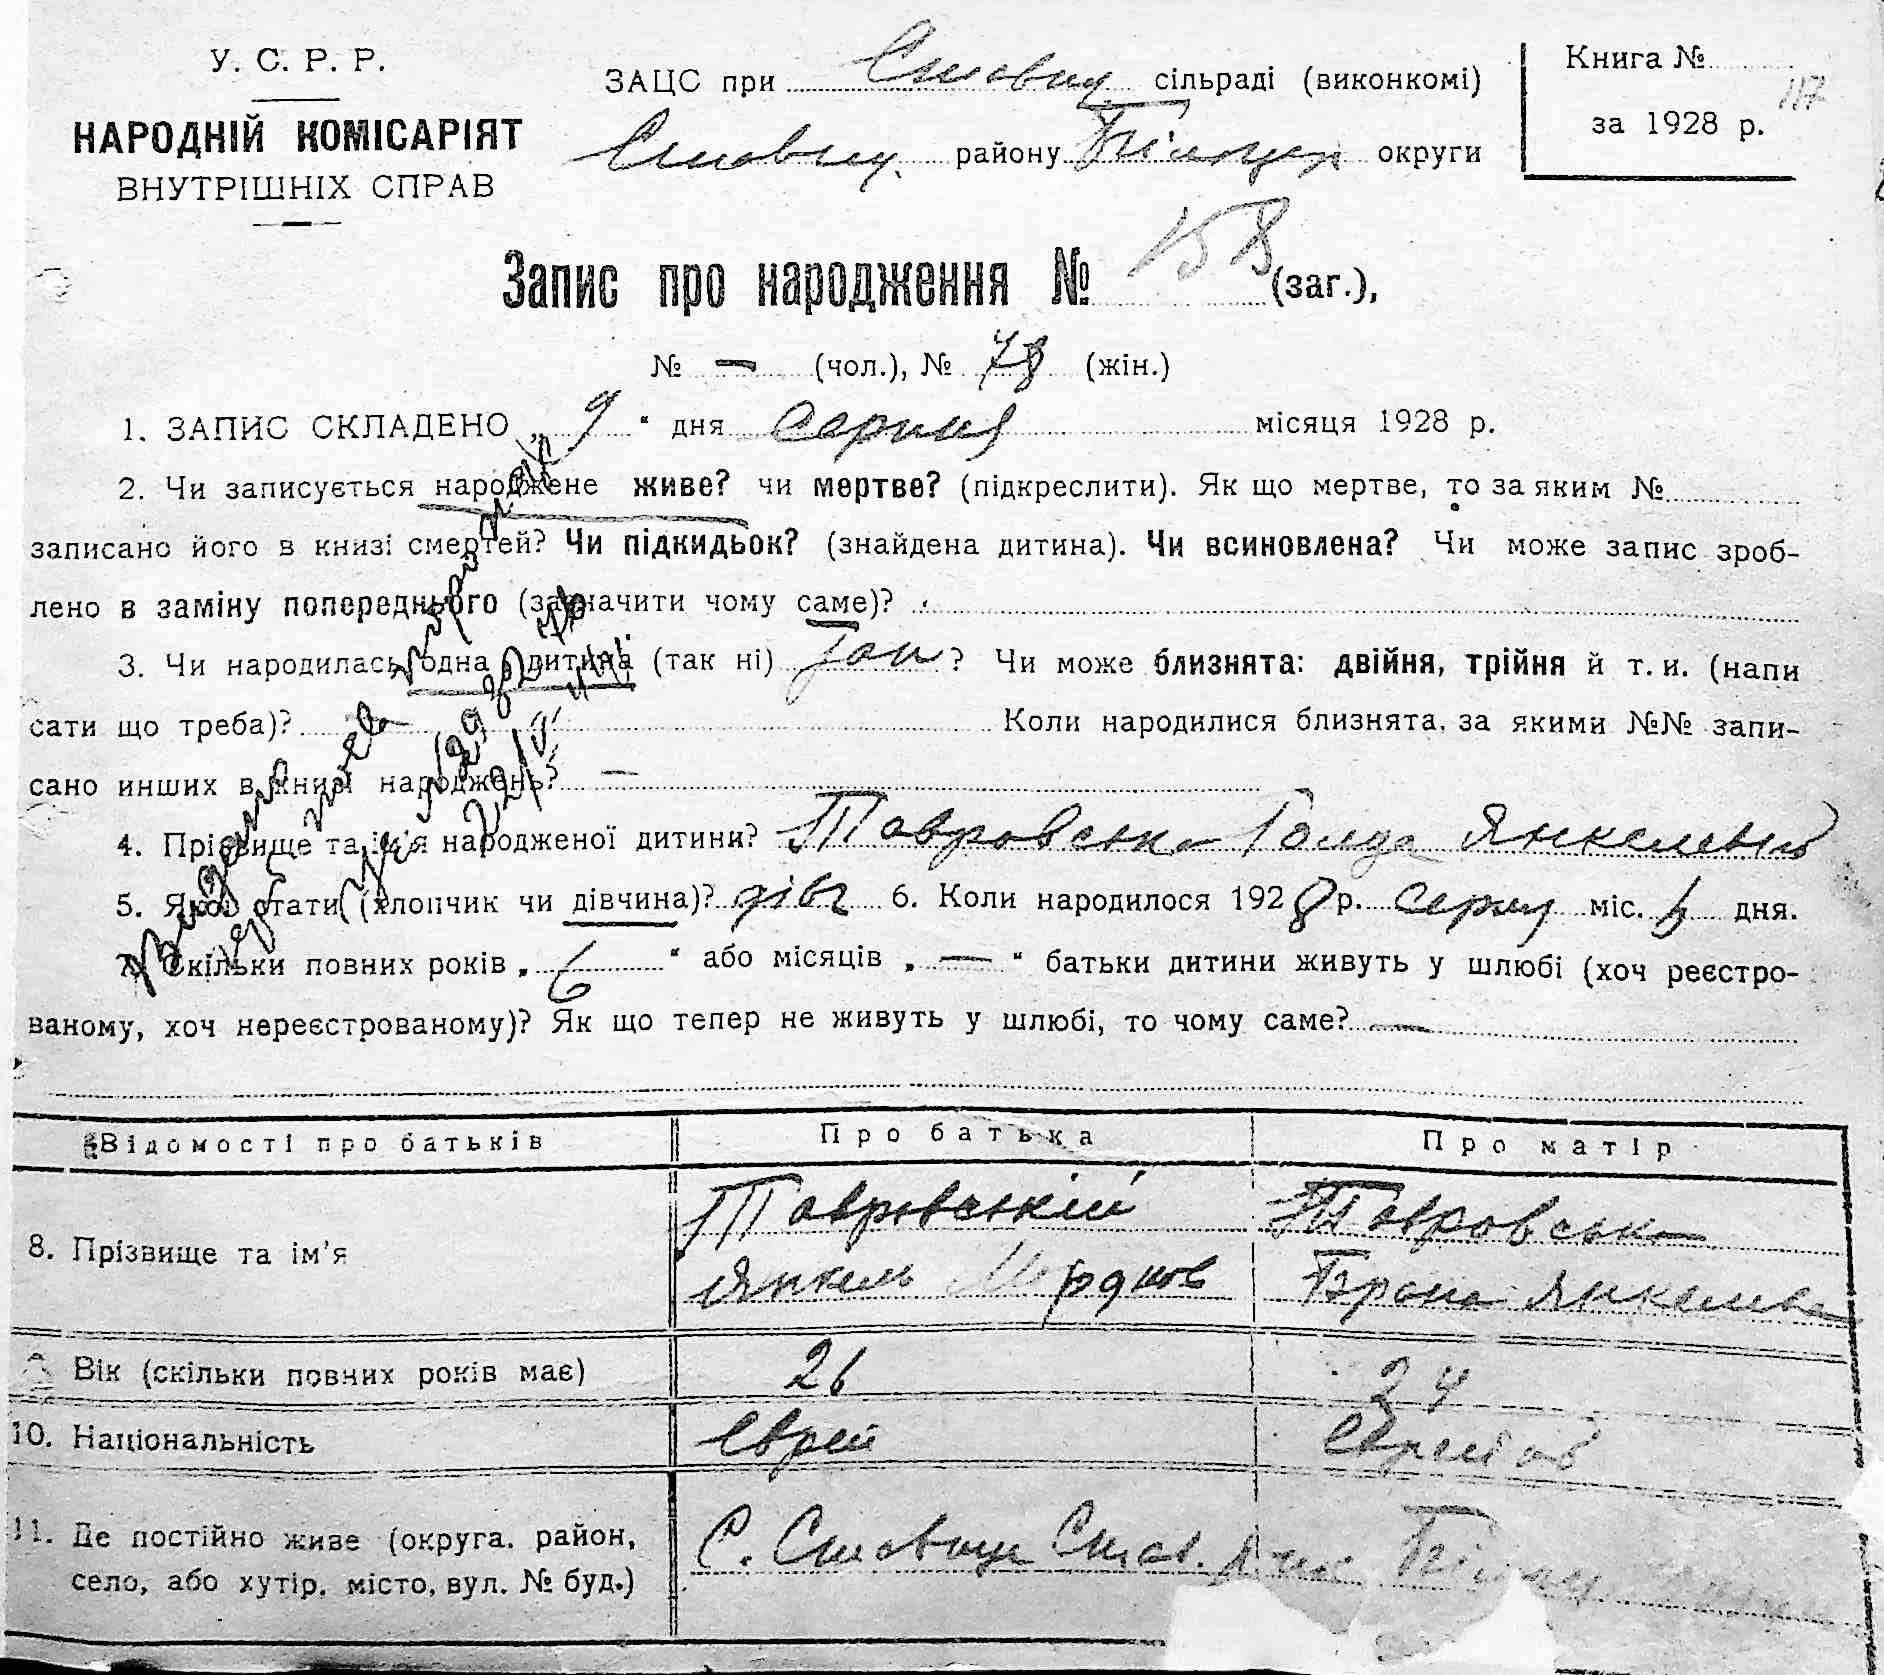 У. С. Р. Р.
НАРОДНІЙ КОМІСАРІЯТ
ВНУТРІШНІХ СПРАВ
ЗАЦС при Ставищ. сільраді (виконкомі)
Ставищ. району Білоцер. округи
Книга №
117
за 1928 р.
Запис про народження № 158 (заг.),
№ — (чол.), № 78 (жін.)
1. ЗАПИС СКЛАДЕНО „ 9 “ дня серпня місяця 1928 р.
2. Чи записується народжене живе? чи мертве? (підкреслити). Як що мертве, то за яким №
записано його в книзі смертей? Чи підкидьок? (знайдена дитина). Чи всиновлена? Чи може запис зроб-
лено в заміну попереднього (зазначити чому саме)?
3. Чи народилась одна дитина (так ні) Так ? Чи може близнята: двійня, трійня й т. и. (напи
сати що треба)? — Коли народилися близнята, за якими №№ запи-
сано инших в книзі народжень? —
4. Прізвище та ім'я народженої дитини? Тавровська Голда Янкелевна
5. Якої стати (хлопчик чи дівчина)? дівч 6. Коли народилося 1928 р. серпн міс. дня.
7. Скільки повних років „ 6 “ або місяців „ — “ батьки дитини живуть у шлюбі (хоч реєстро-
ваному, хоч нереєстрованому)? Як що тепер не живуть у шлюбі, то чому саме? —
Відомості про батьків Про батька Про матір
8. Прізвище та ім'я
Тавровський Тавровська
Янкель Мордков Брана Янкелевна
Вік (скільки повних років має) 26 24
10. Національність еврей еврейка
11. Де постійно живе (округа, район,
село, або хутір, місто, вул. № буд.)
С. Ставище Став.